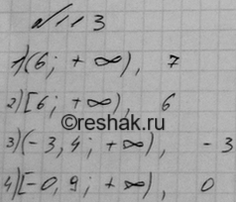 №113
1) (6; +∞), 7
2) [6; +∞), 6
©reshak.ru
3) (-3,4; +∞), -3
4) [-0,9; +∞), 0